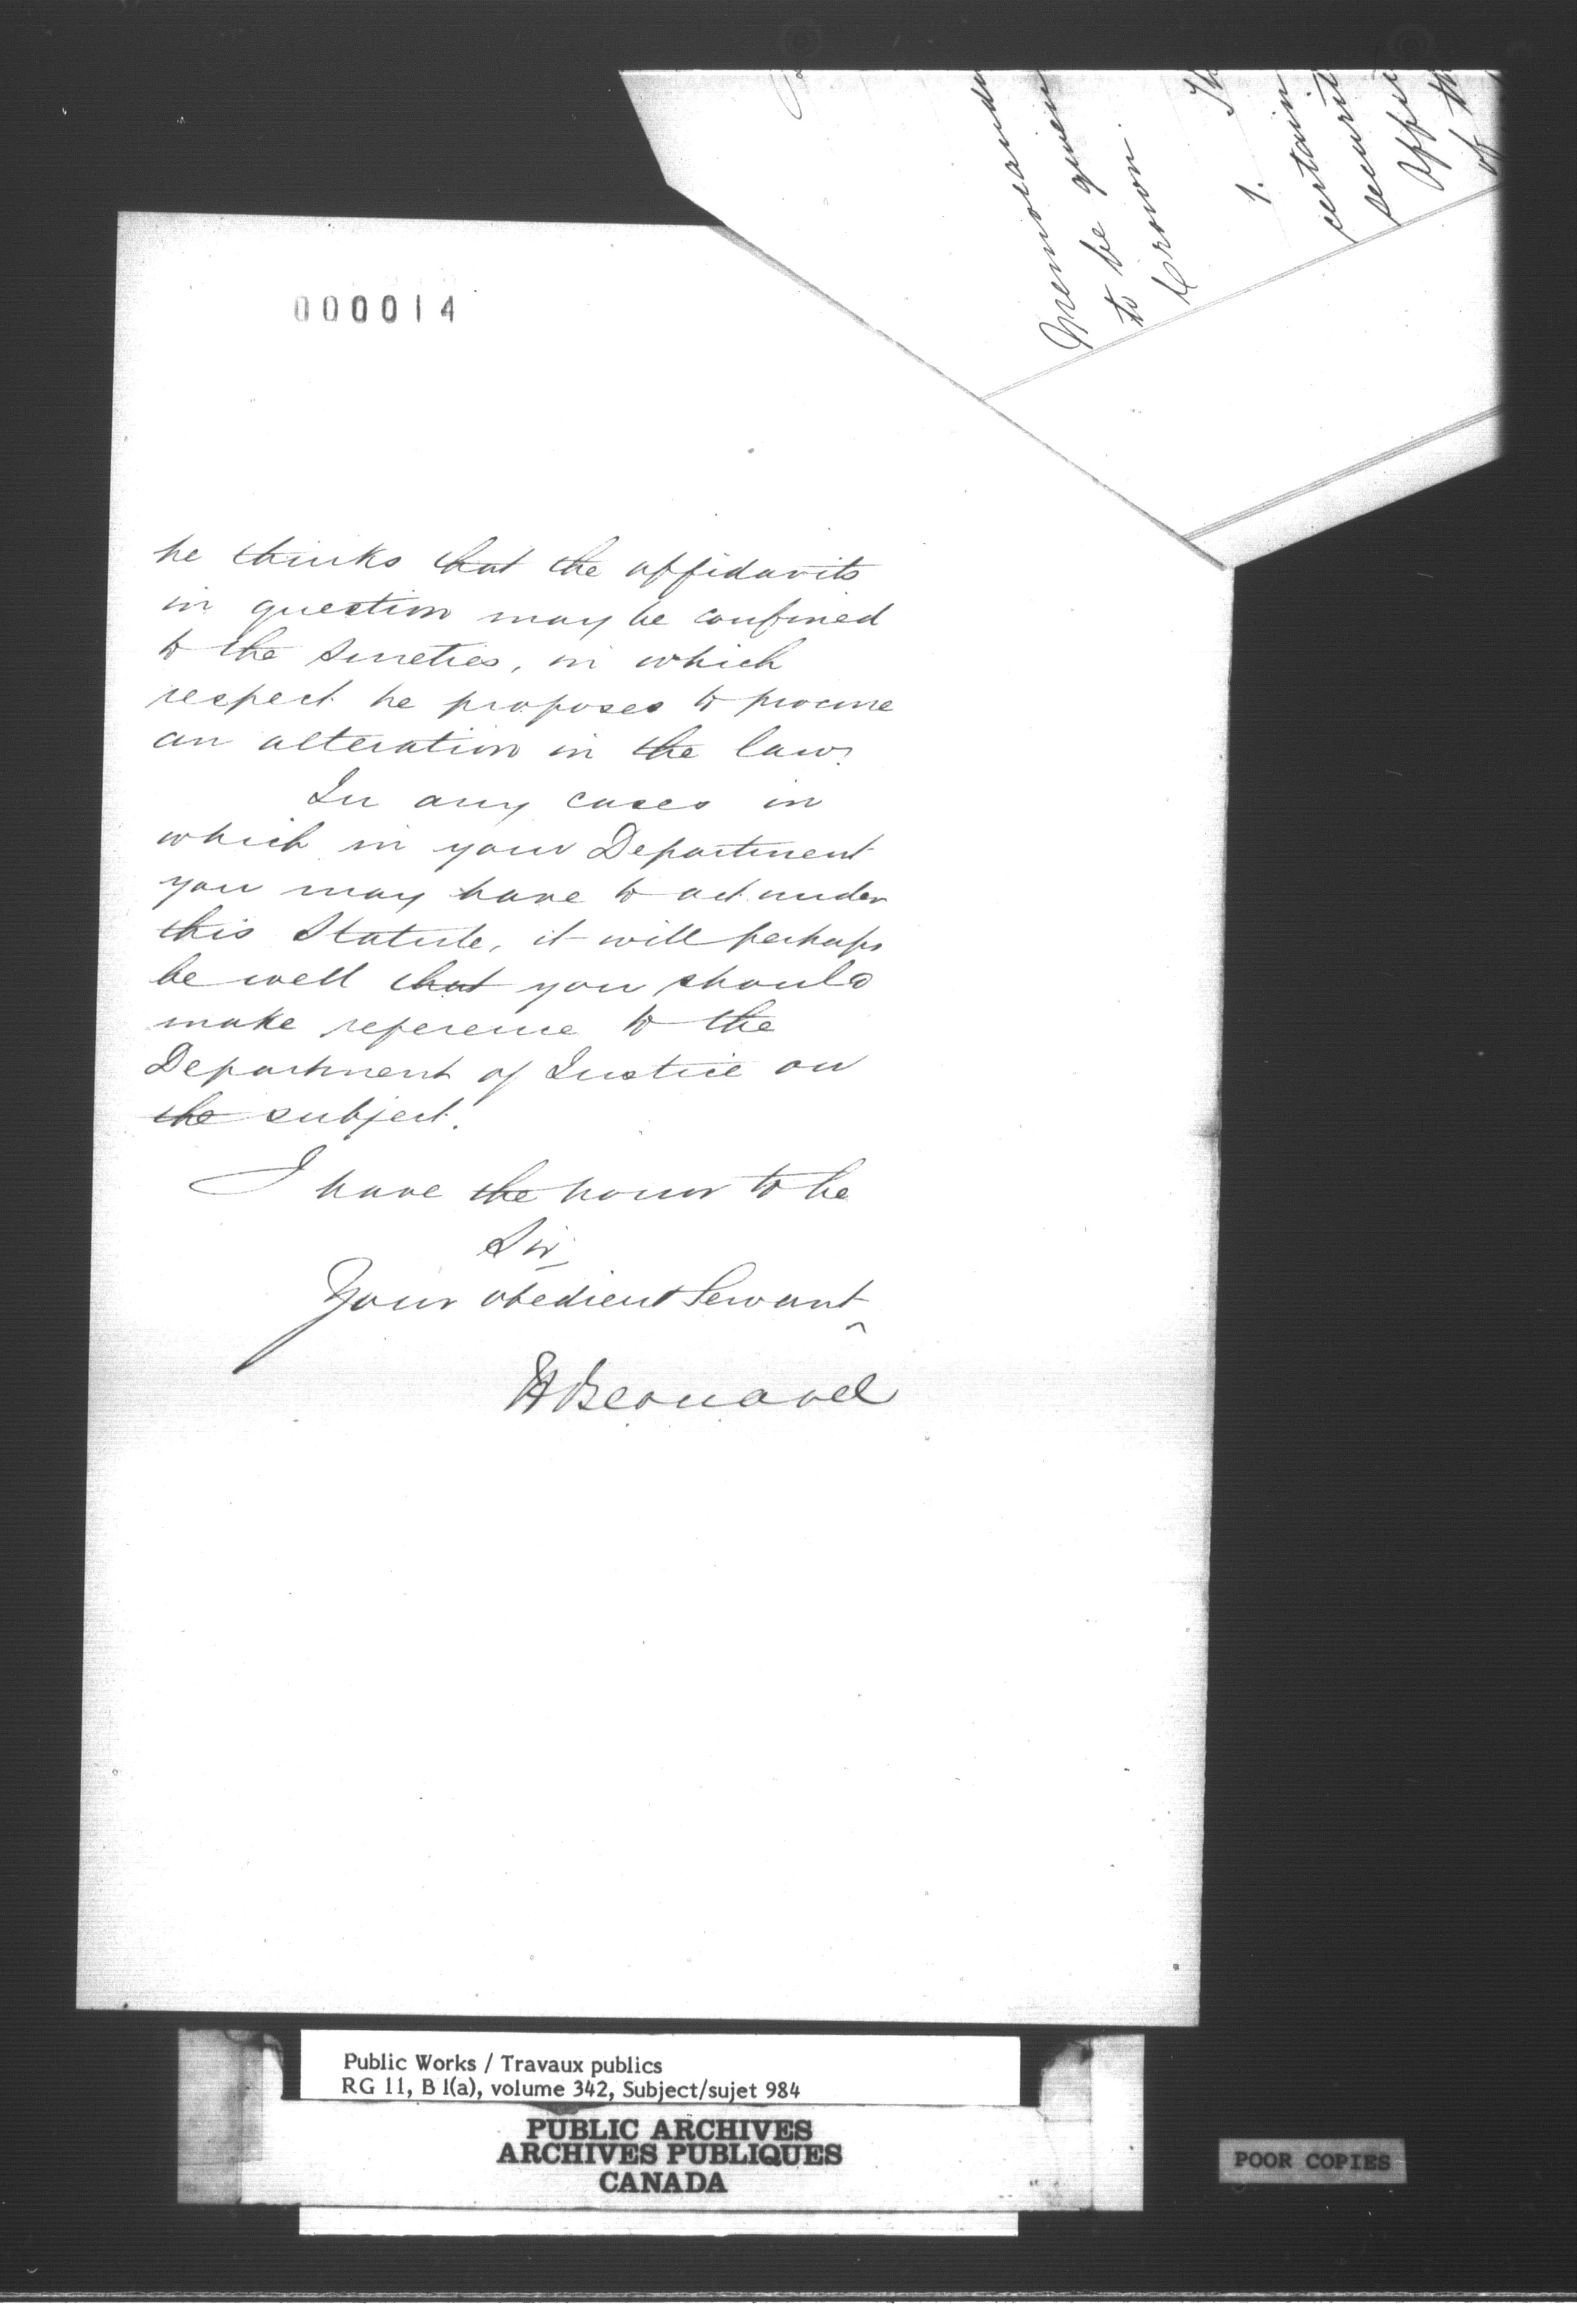 000014
he thinks that the affidavits
in question may be confined
to the sureties, in which
respect he proposes to procure
an alteration in the law.
In any cases in
which in your Department
you may have to act under
this Statute, it will perhaps
be well that you should
make reference to the
Department of Justice on
the subject.
I have the honor to be
Sir,
Your obedient Servant
H Bernard
to be given
Crown.
1.
certain
of
Public Works / Travaux publics
RG 11, B 1(a), volume 342, Subject/sujet 984
PUBLIC ARCHIVES
ARCHIVES PUBLIQUES
CANADA
POOR COPIES